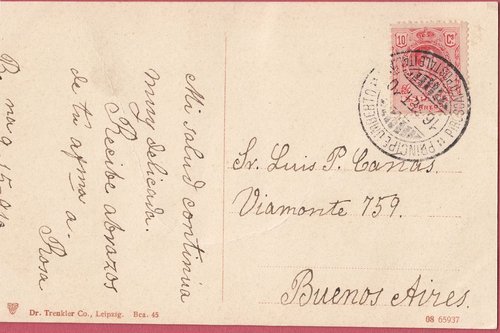 Mi salud continúa
muy delicada.
Recibe abrazos
de tu afma a.
Rosa
10 Cs
10
PRINCIPE UMBERTO
POSTALE ITAL
Sr. Luis P. Canas.
Viamonte 759.
Buenos Aires.
Dr. Trenkler Co., Leipzig. Bca. 45
08 65937